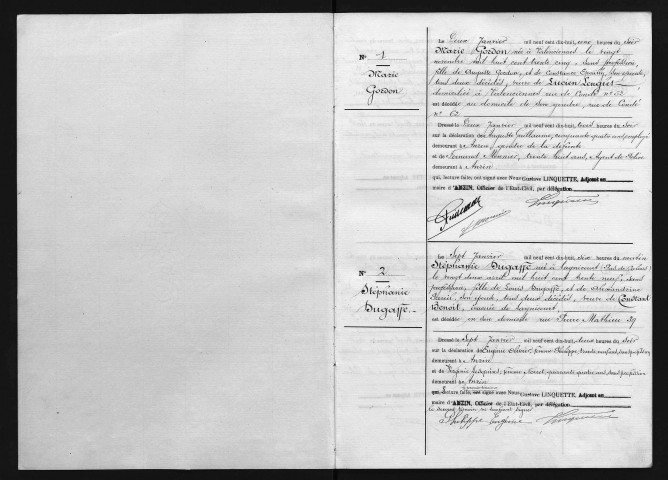 N° 1
Marie
Gordon
Le Deux Janvier mil neuf cent dix-huit, onze heures du soir
Marie Gordon née à Valenciennes le vingt
novembre mil huit cent trente cinq, sans profession,
fille de Auguste Gordon, et de Constance
tous deux décédés, veuve de Lucien Lengrès
domiciliée à Valenciennes rue de Condé n° 62
est décédée au domicile de son gendre, rue de Condé
n° 62
Dressé le Deux Janvier mil neuf cent dix-huit, trois heures du soir
sur la déclaration de Auguste Guillaume, cinquante quatre ans, employé
demeurant à Anzin, gendre de la défunte
et de Fernand Meunier, trente huit ans, Agent de Police
demeurant à Anzin
qui, lecture faite, ont signé avec Nous Gustave LINQUETTE, Adjoint au
maire d'ANZIN, Officier de l'Etat-Civil, par délégation
N° 2
Stéphanie
Dugaffe
Le Sept Janvier mil neuf cent dix-huit, dix heures du matin
Stéphanie Dugaffe née à Lagnicourt (Pas de Calais)
le vingt deux avril mil huit cent trente neuf, sans
profession, fille de Louis Dugaffe, et de Alexandrine
son épouse, tous deux décédés, veuve de Constant
Benoit, de Lagnicourt,
est décédée en son domicile rue Pierre Mathieu 39
Dressé le Sept Janvier mil neuf cent dix-huit, deux heures du soir
sur la déclaration de Eugénie Olivier, femme Philippe, trente neuf ans, sans profession
demeurant à Anzin
et de Virginie femme quarante quatre ans, sans profession
demeurant à Anzin
qui, lecture faite, avec Nous Gustave LINQUETTE, Adjoint au
maire d'ANZIN, Officier de l'Etat-Civil, par délégation
Philippe Eugénie